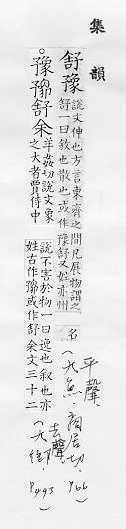 集韻
舒豫
說文伸也方言東齊之間凡展物謂之
舒一曰敘也散也或作豫舒又姓亦州
名
平聲
(九魚)商居切 P66)
。豫 舒余
羊茹切說文象
之大者賈侍中
說不害於物一曰逸也敘也亦
姓古作 或作舒余文三十二
去聲
(九御) P493)